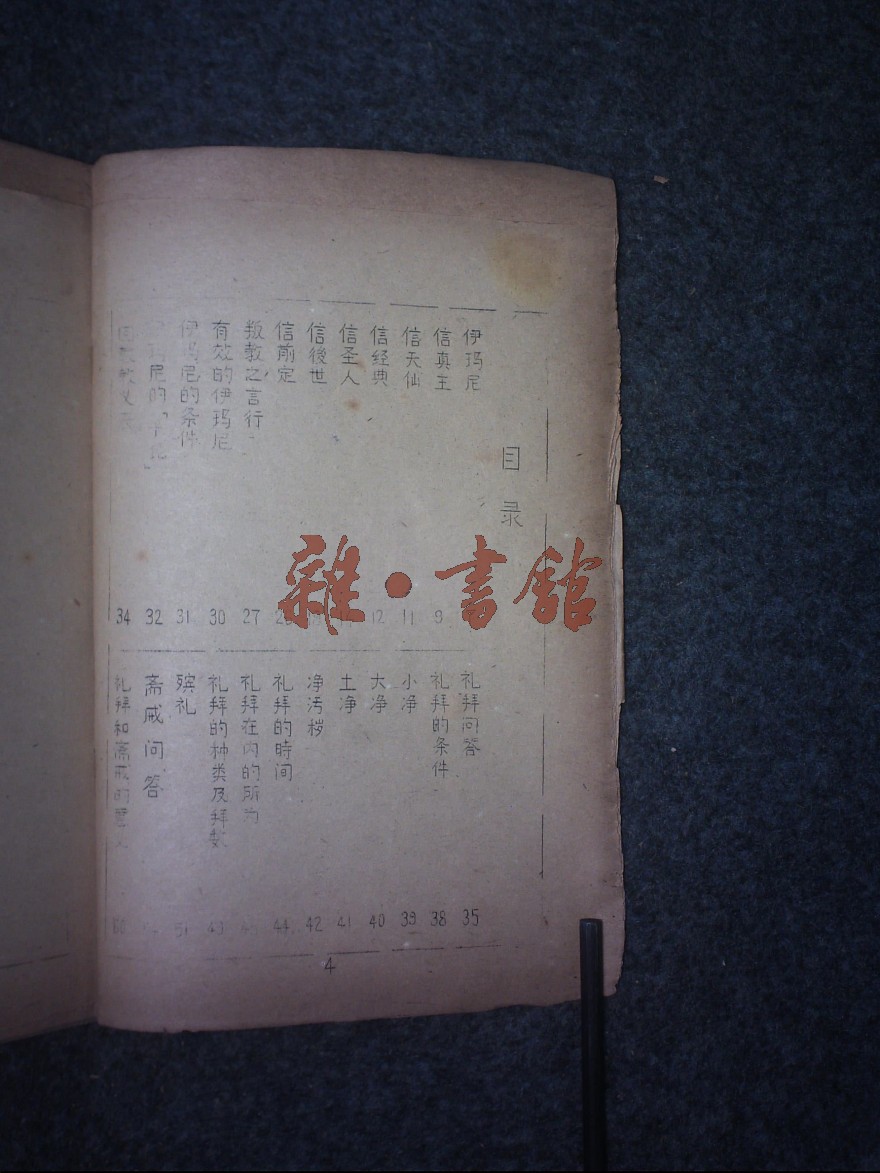 目录
伊玛尼
信真主 9
信天仙 11
信经典 12
信圣人
信後世
信前定
叛教之言行 27
有效的伊玛尼 30
伊玛尼的条件 31
玛尼的 32
34
礼拜问答 35
礼拜的条件 38
小净 39
大净 40
土净 41
净污秽 42
礼拜的時间 44
礼拜在内的所为
礼拜的种类及拜数
殡礼 51
斋戒问答
礼拜和斋戒的
4
雜·書館